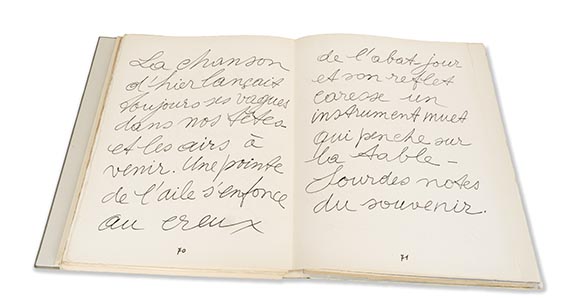 La chanson
d'hier lançait
toujours ses vagues
dans nos têtes
et les airs à
venir. Une pointe
de l'aile s'enfonce
au creux
70
de l'abat, jour
et son reflet
caresse un
instrument muet
qui penche sur
la table –
Lourdes notes
du souvenir.
71